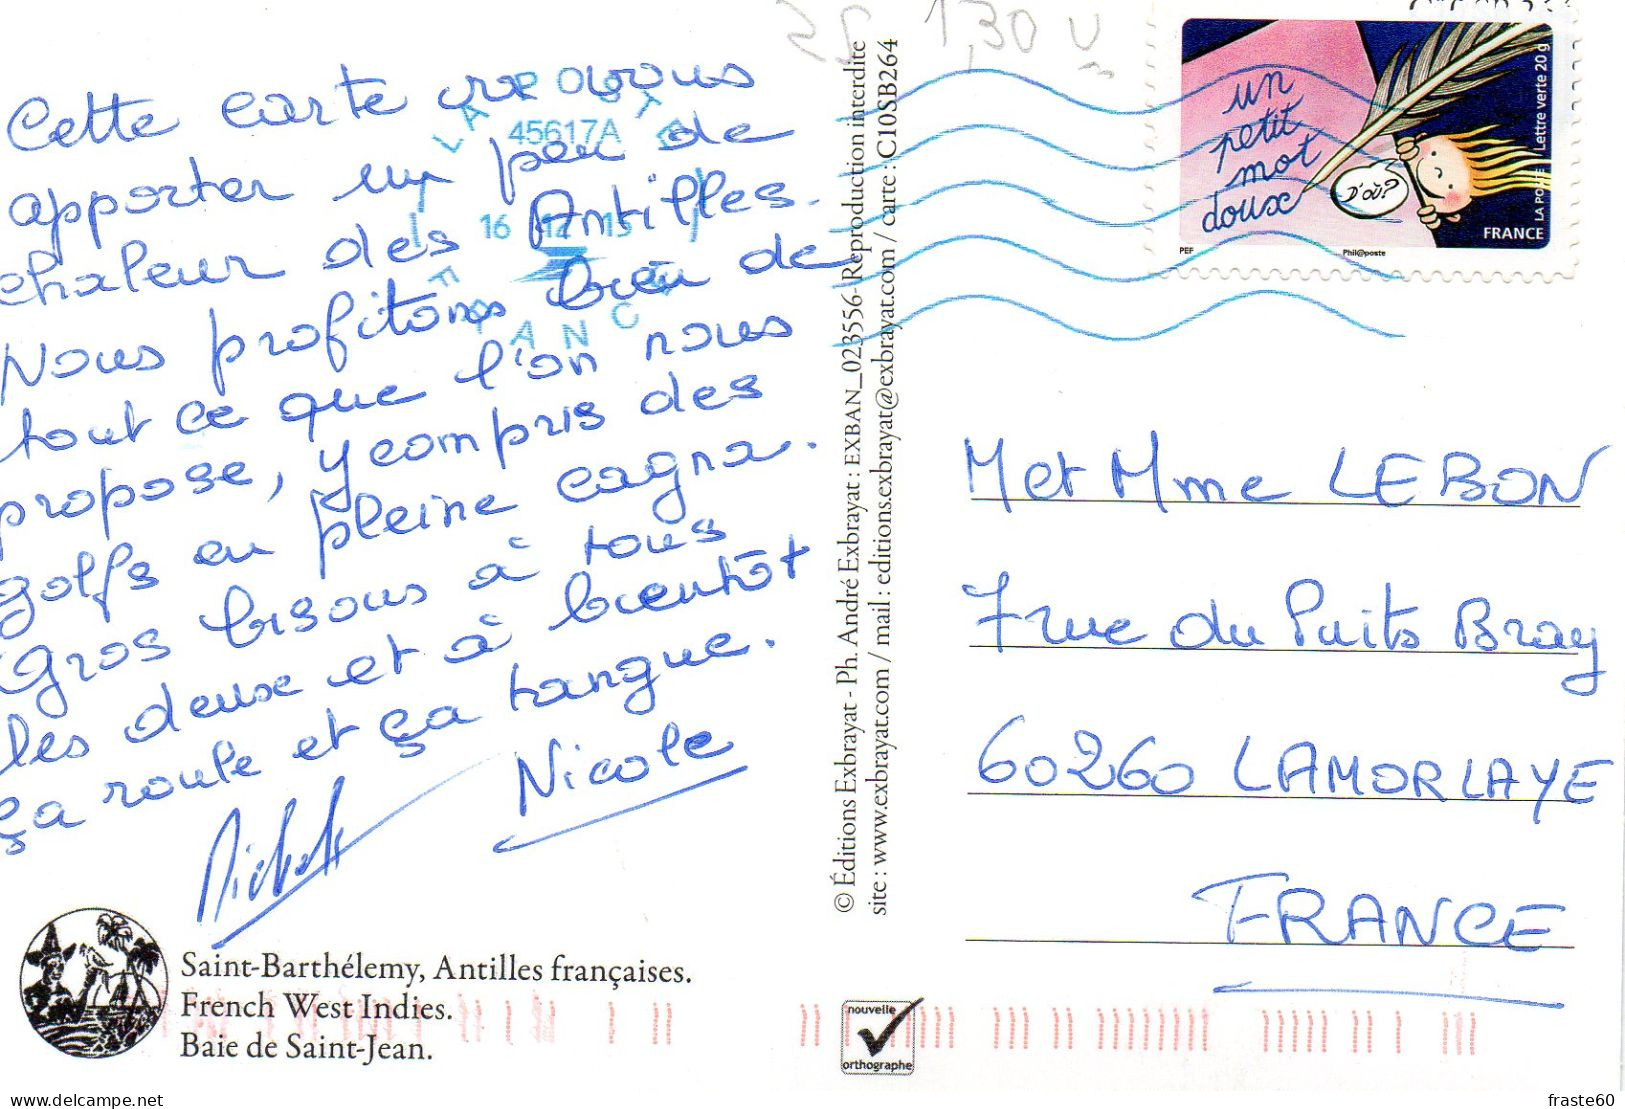 Cette carte va vous
apporter un peu de
chaleur des Antilles.
Nous profitons bien de
tout ce que l'on nous
propose, y compris des
golfs en pleine cagna.
Gros bisous à tous
les deux et à bientôt
ça roule et ça tangue.
Nicole
Saint-Barthélemy, Antilles françaises.
French West Indies.
Baie de Saint-Jean.
LA POSTE
45617A
16 12 15
FRANCE
© Éditions Exbrayat - Ph. André Exbrayat : EXBAN_023556-Reproduction interdite
site : www.exbrayat.com / mail : editions.exbrayat@exbrayat.com / carte : C10SB264
nouvelle
orthographe
1,30
un
petit
mot
doux
D'où?
Lettre verte 20 g
LA POSTE
FRANCE
PEF
Phil@poste
M et Mme LEBON
7 rue du Puits Bray
60260 LAMORLAYE
FRANCE
delcampe.net
fraste60